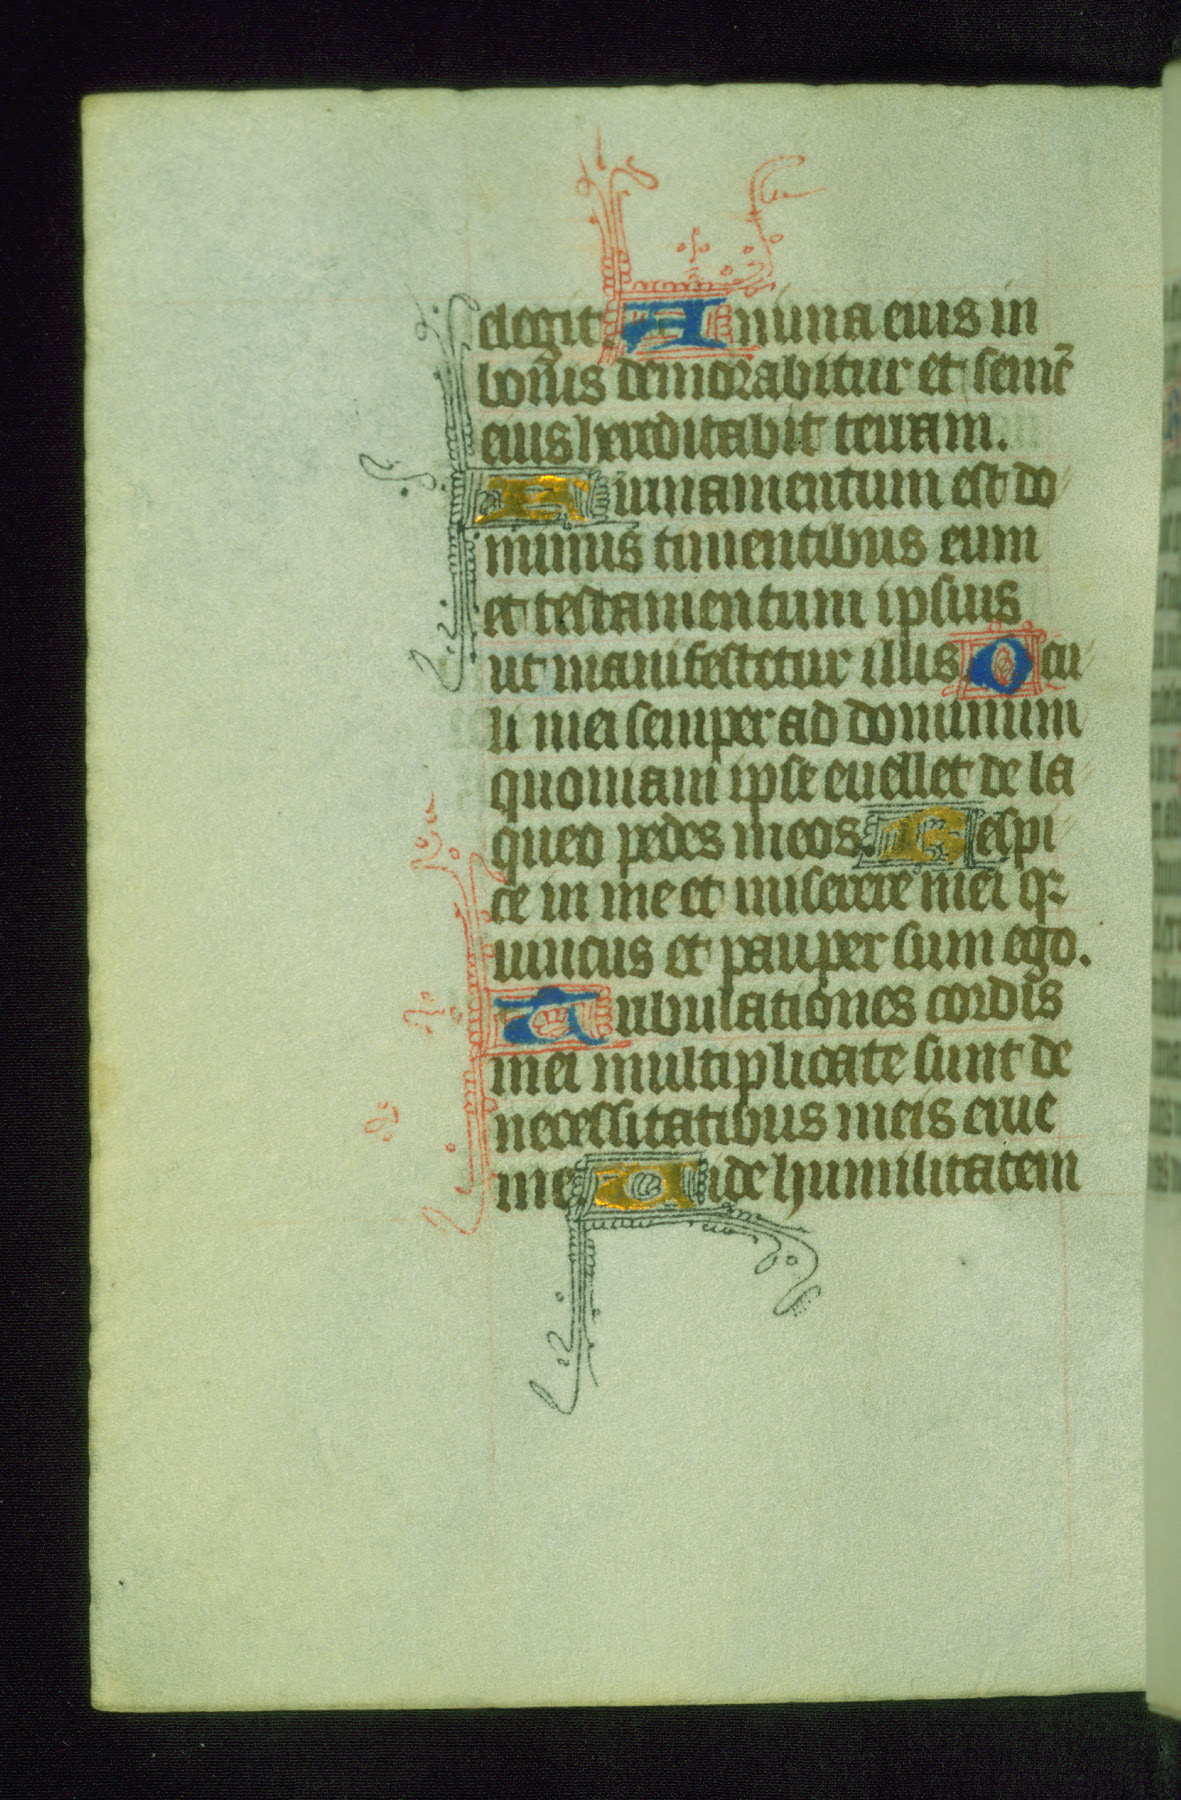 elegit Anima eius in
bonis demorabitur et semē
eius hereditabit terram.
Firmamentum est do
minus timentibus eum
et testamentum ipsius
ut manifestetur illis Ocu
li mei semper ad dominum
quoniam ipse euellet de la
queo pedes meos. Respi
ce in me et miserere mei qꝛ
unicus et pauper sum ego.
Tribulationes cordis
mei multiplicate sunt de
necessitatibus meis erue
me Uide humilitatem